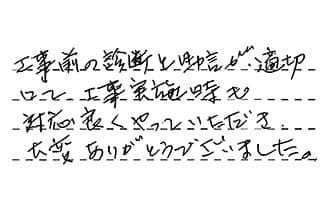 工事前の診断と助言が適切
にて工事実施時も
対応良くやっていただき
大変ありがとうございました。